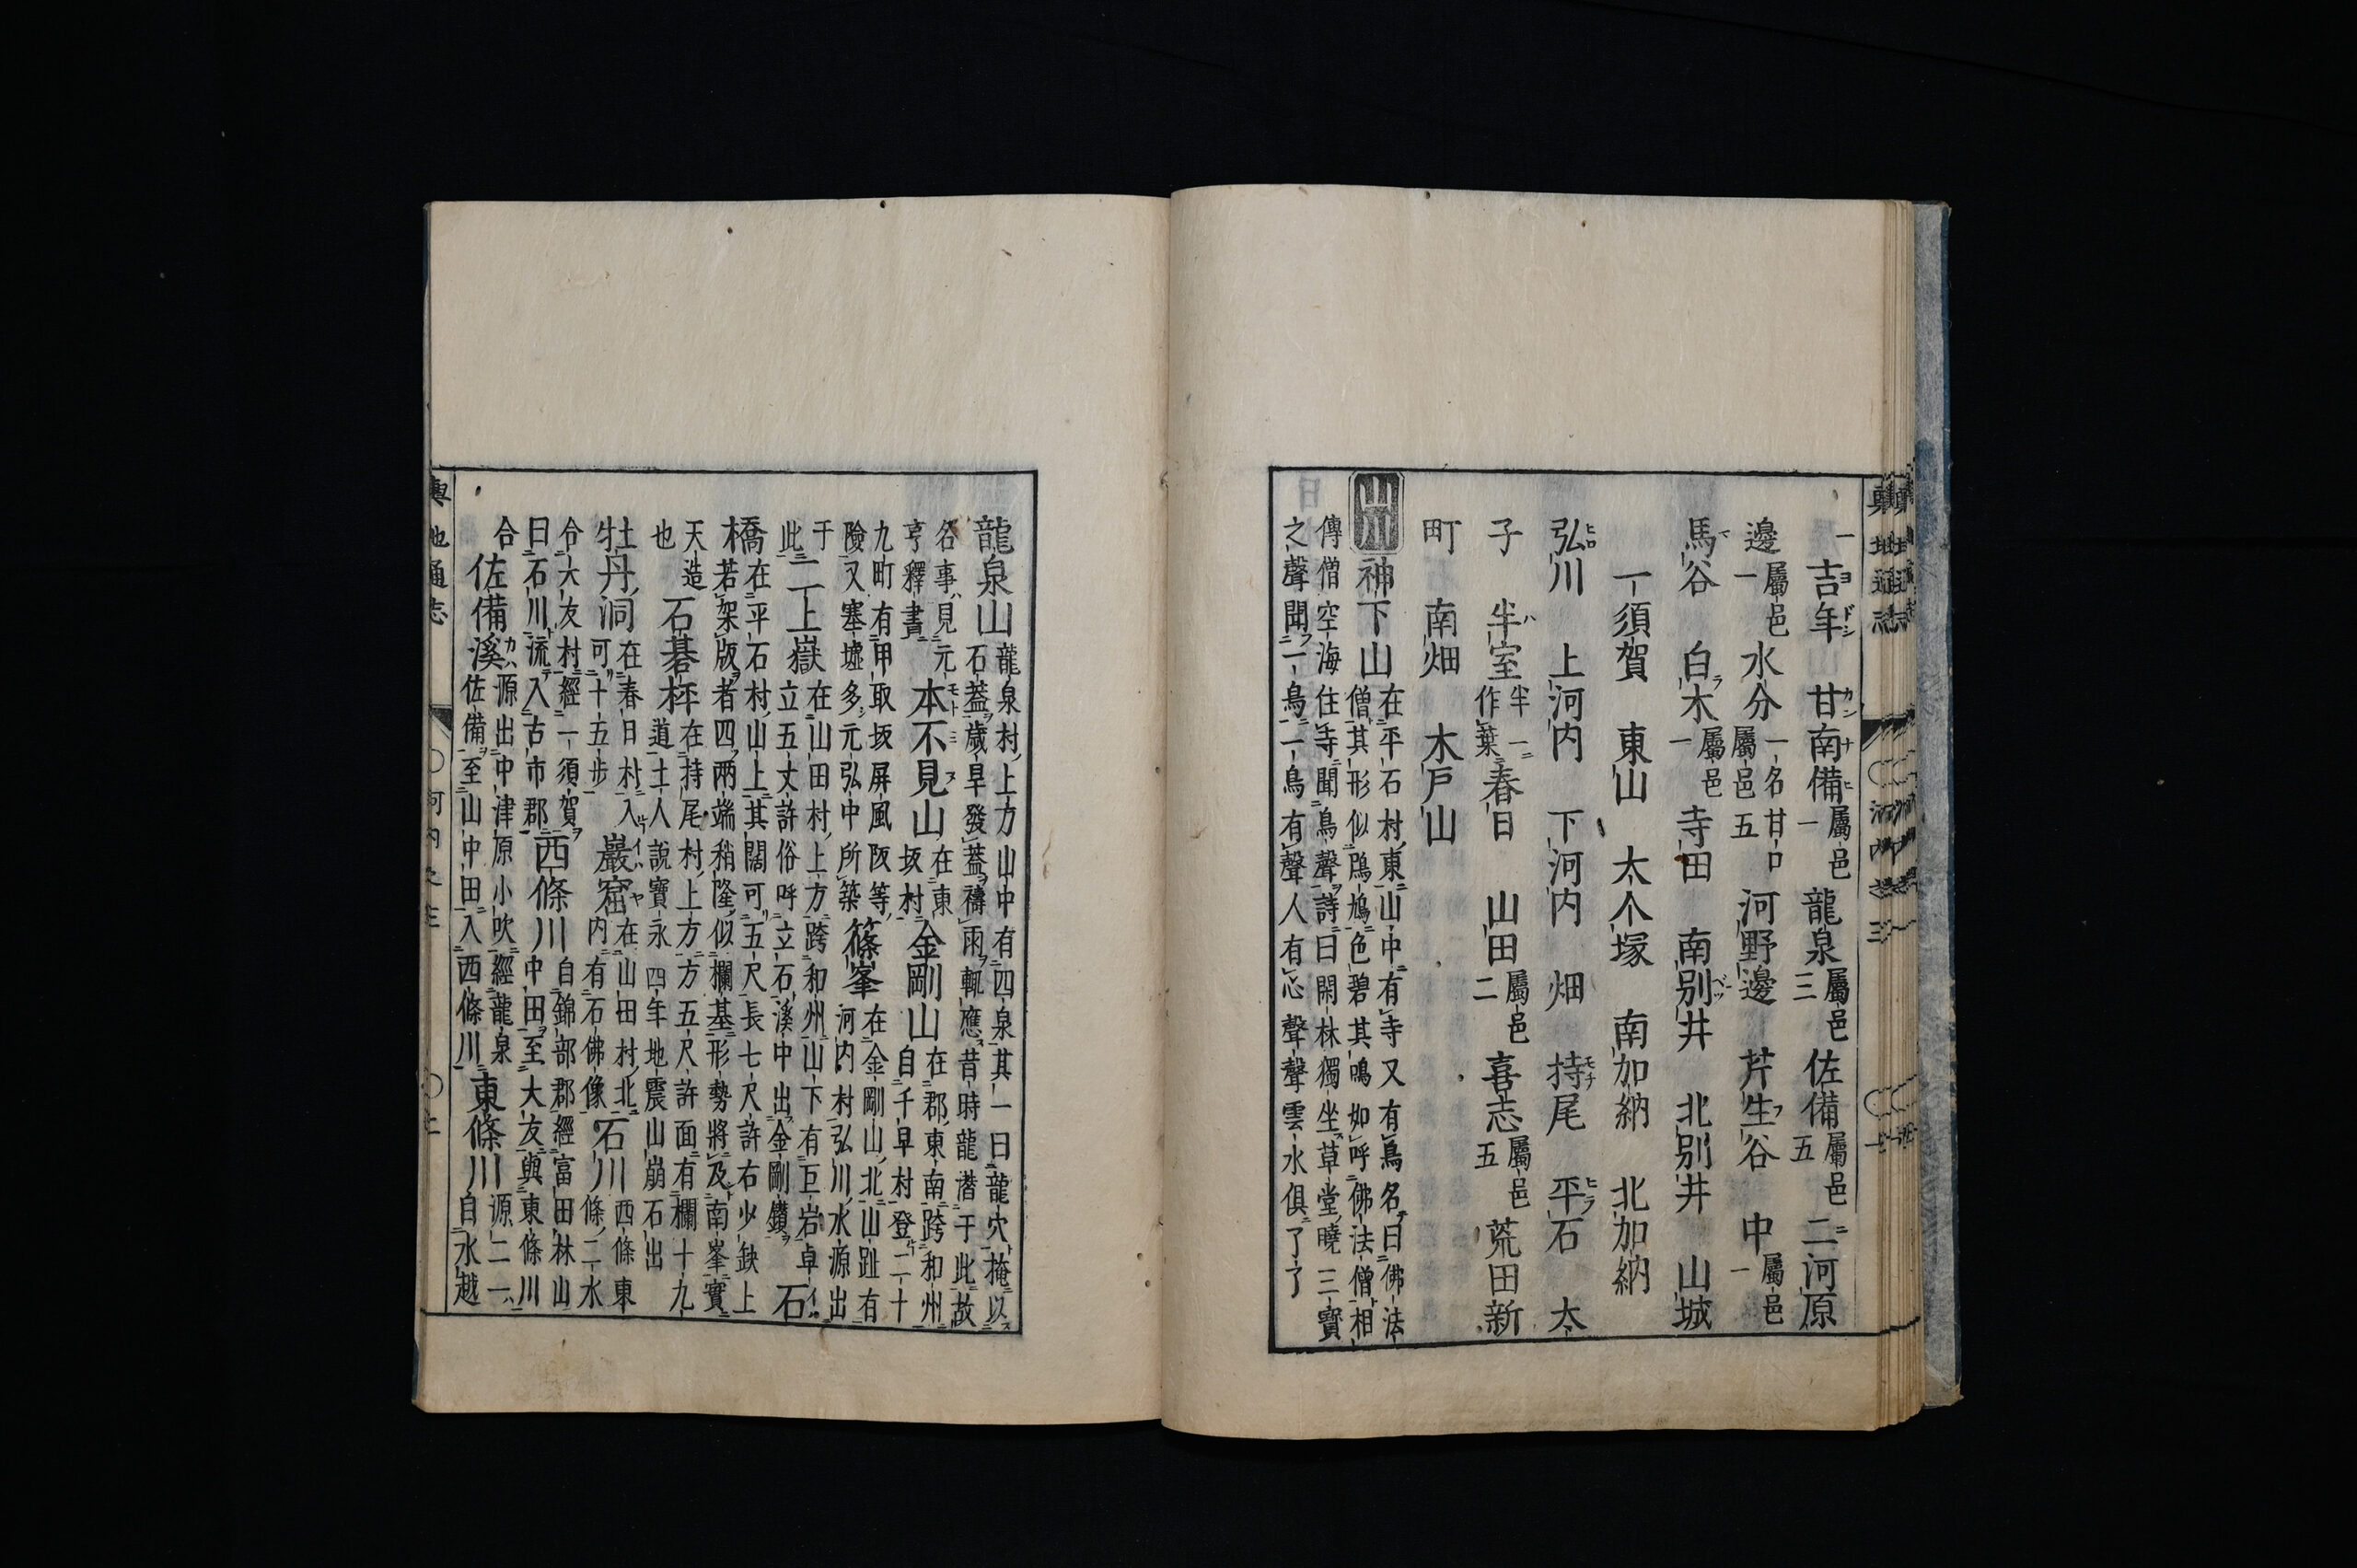 一 吉年 甘南備 屬邑一 龍泉 屬邑三 佐備 屬邑五 二河原
邊 屬邑一 水分 一名甘口屬邑五 河野邊 芹生谷 中 屬邑一
馬谷 白木 屬邑一 寺田 南別井 北別井 山城
一須賀 東山 大个塚 南加納 北加納
弘川 上河内 下河内 畑 持尾 平石 太
子 半室 半一作葉 春日 山田 屬邑二 喜志 屬邑五 荒田新
町 南畑 木戸山
神下山 在平石村東山中有寺又有鳥名曰佛法
僧其形似鳩色碧其鳴如呼佛法僧相
傳僧空海住寺聞鳥聲詩曰閑林獨坐草堂曉三寶
之聲聞一鳥一鳥有聲人有心聲聲雲水俱了了
龍泉山 龍泉村上方山中有四泉其一曰龍穴掩以
石蓋歲旱發蓋禱雨輒應昔時龍潛于此故
名事見元
亨釋書 本不見山 在東坂村 金剛山 在郡東南跨和州
自千早村登二十
九町有甲取坂屏風阪等
險又塞墟多元弘中所築 篠峯 在金剛山北山趾有
河内村弘川水源出
于
此 二上嶽 在山田村上方跨和州山下有巨岩卓
立五丈許俗呼立石溪中出金剛鑽 石
橋 在平石村山上其闊可五尺長七尺許右少缺上
若架版者四兩端稍隆似欄基形勢將及南峯實
天造
也 石碁枰 在持尾村上方方五尺許面有欄十九
道土人說寶永四年地震山崩石出
牡丹洞 在春日村入
可十五步 巖窟 在山田村北
内有石佛像 石川 西條東
條二水
合六友村經一須賀
曰石川流入古市郡 西條川 自錦部郡經富田林山
中田至大友與東條川
合 佐備溪 源出中津原小吹經龍泉
佐備至山中田入西條川 東條川 源二一
自水越